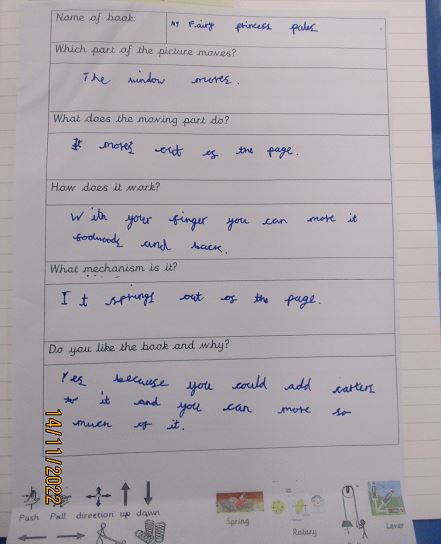 Name of book:
My Fairy princess pales
Which part of the picture moves?
The window moves.
What does the moving part do?
It moves out of the page.
How does it work?
With your finger you can move it
and back.
What mechanism is it?
It springs out of the page.
Do you like the book and why?
Yes because you could add
to it and you can move so
much of it.
14/11/2022
Push Pull direction up down
Spring
Rotary
Lever